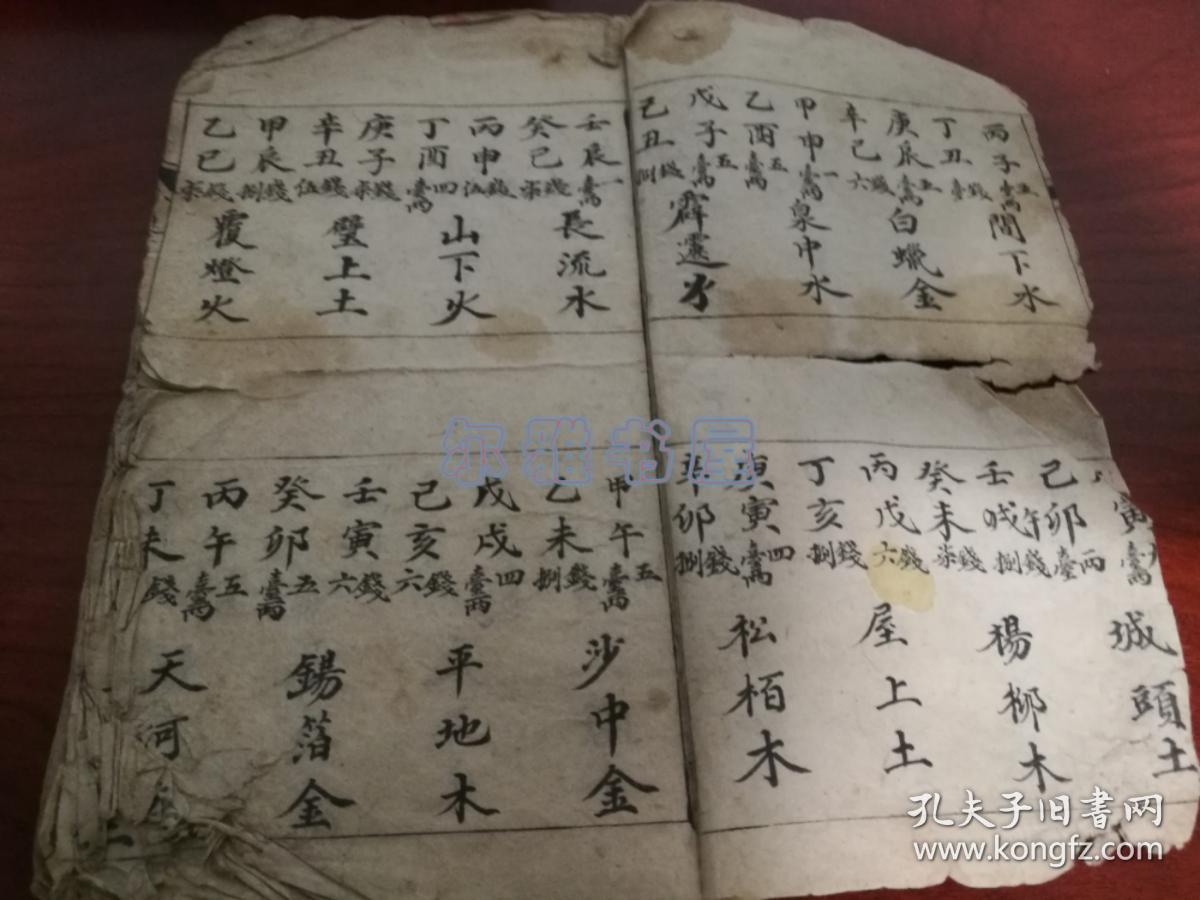 丙子五臺両
間下水
丁丑臺錢
庚辰臺両五
白蠟金
辛巳六錢
甲申臺両一
泉中水
乙酉臺両五
戊子臺両五
霹靂火
己丑捌錢
壬辰臺両一
長流水
癸巳柒錢
丙申伍錢
山下火
丁酉臺両四
庚子柒錢
壁上土
辛丑伍錢
甲辰捌錢
覆燈火
乙巳柒錢
寅臺両
城頭土
己卯臺両
壬午捌錢
楊柳木
癸未柒錢
丙戌六錢
屋上土
丁亥捌錢
庚寅臺両四
松栢木
辛卯捌錢
甲午臺両五
沙中金
乙未捌錢
戊戌臺両四
平地木
己亥六錢
壬寅六錢
錫箔金
癸卯臺両五
丙午臺両五
天河
丁未錢
尔雅书屋
孔夫子旧书网
www.kongfz.com